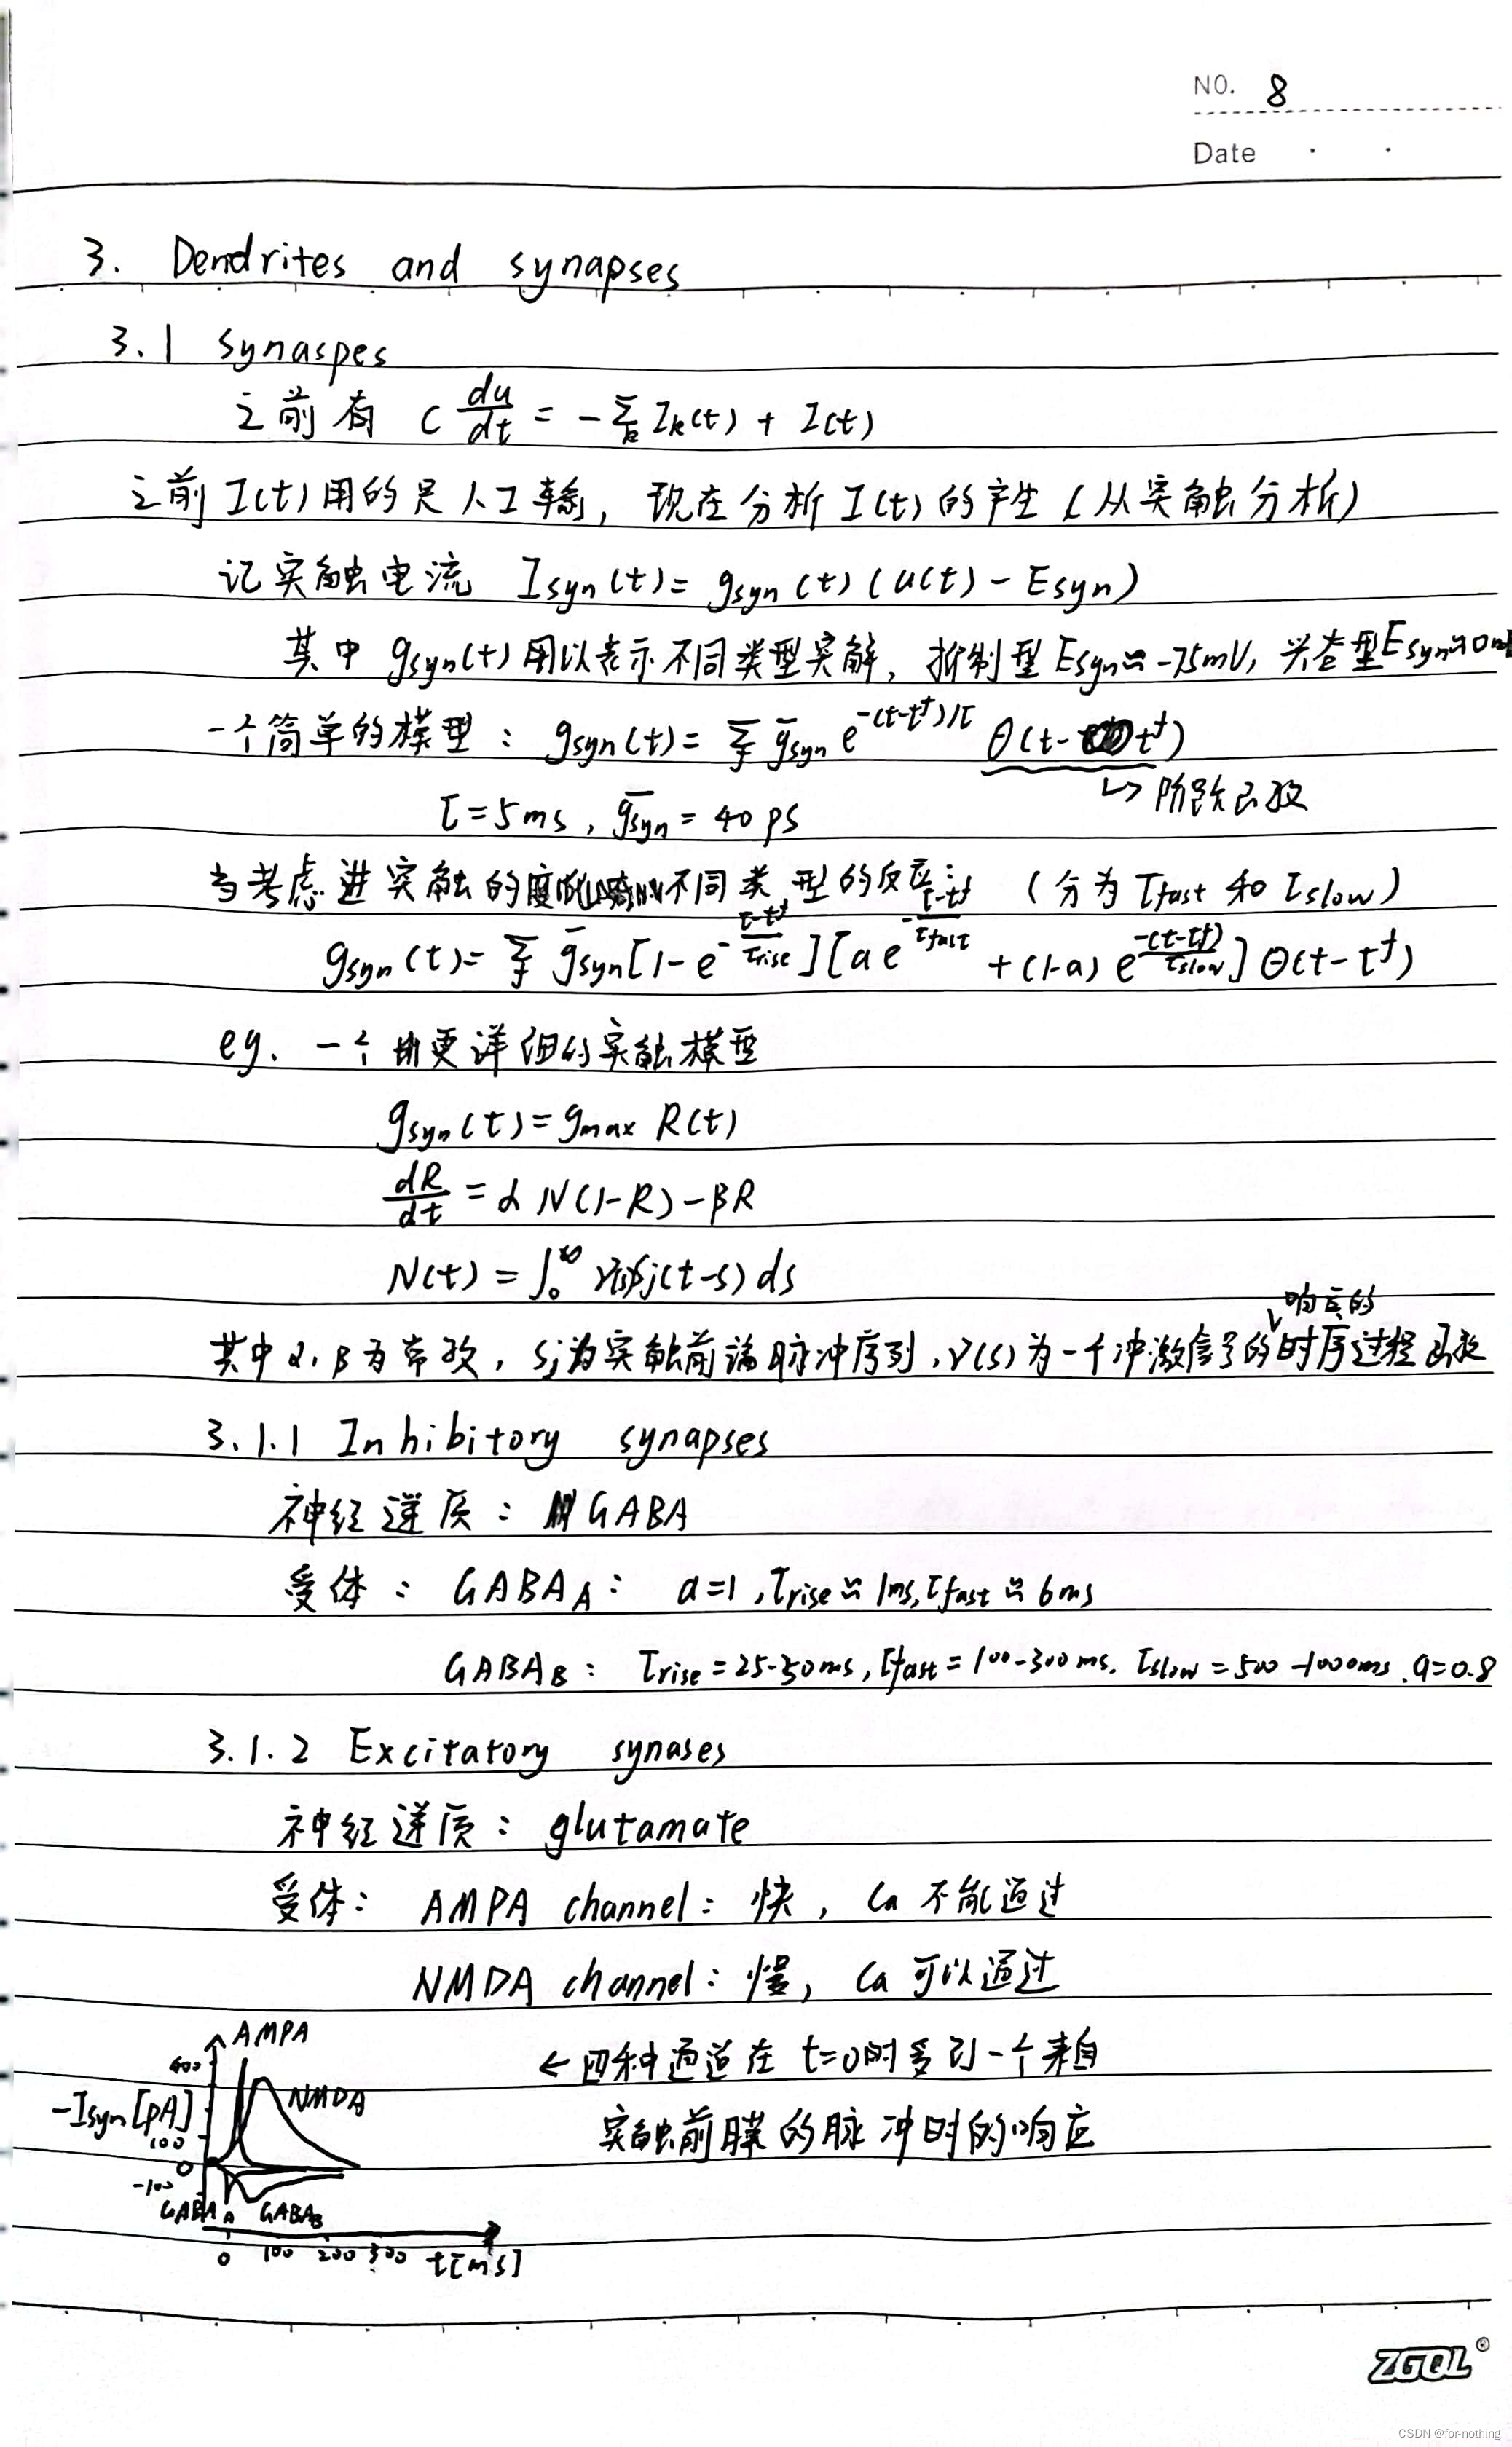 NO. 8
Date
3. Dendrites and synapses
3.1 Synaspes
之前有 C du/dt = -∑k Ik(t) + I(t)
之前I(t)用的是人工输, 现在分析I(t)的产生(从突触分析)
记突触电流 Isyn(t) = gsyn(t)(u(t) - Esyn)
其中 gsyn(t)用以表示不同类型突触, 抑制型Esyn≈-75mV, 兴奋型Esyn≈0m
一个简单的模型: gsyn(t) = ∑f ḡsyn e^{-(t-t^f)/τ} θ(t-t^f)
↳阶跃函数
τ=5ms, ḡsyn = 40 pS
当考虑进突触的不同类型的反应 (分为τfast 和 τslow)
gsyn(t) = ∑f ḡsyn[1-e^{-(t-t^f)/τrise}][a e^{-(t-t^f)/τfast} + (1-a) e^{-(t-t^f)/τslow}] Θ(t-t^f)
eg. 一个更详细的突触模型
gsyn(t) = gmax R(t)
dR/dt = α N(1-R) - βR
N(t) = ∫₀^∞ γ(s)Sj(t-s) ds
响应的
其中α, β为常数, Sj为突触前端脉冲序列, γ(s)为一个冲激信号的时序过程函数
3.1.1 Inhibitory synapses
神经递质: GABA
受体: GABA_A: a=1, τrise≈1ms, τfast≈6ms
GABA_B: τrise=25-50ms, τfast=100-300ms. τslow=500-1000ms. a=0.8
3.1.2 Excitatory synases
神经递质: glutamate
受体: AMPA channel: 快, Ca 不能通过
NMDA channel: 慢, Ca 可以通过
AMPA
400
NMDA
-Isyn[pA]
100
0
-100
GABA_A GABA_B
0 100 200 300 t[ms]
← 四种通道在 t=0时受到一个来自
突触前膜的脉冲时的响应
ZGQL®
CSDN @for-nothing